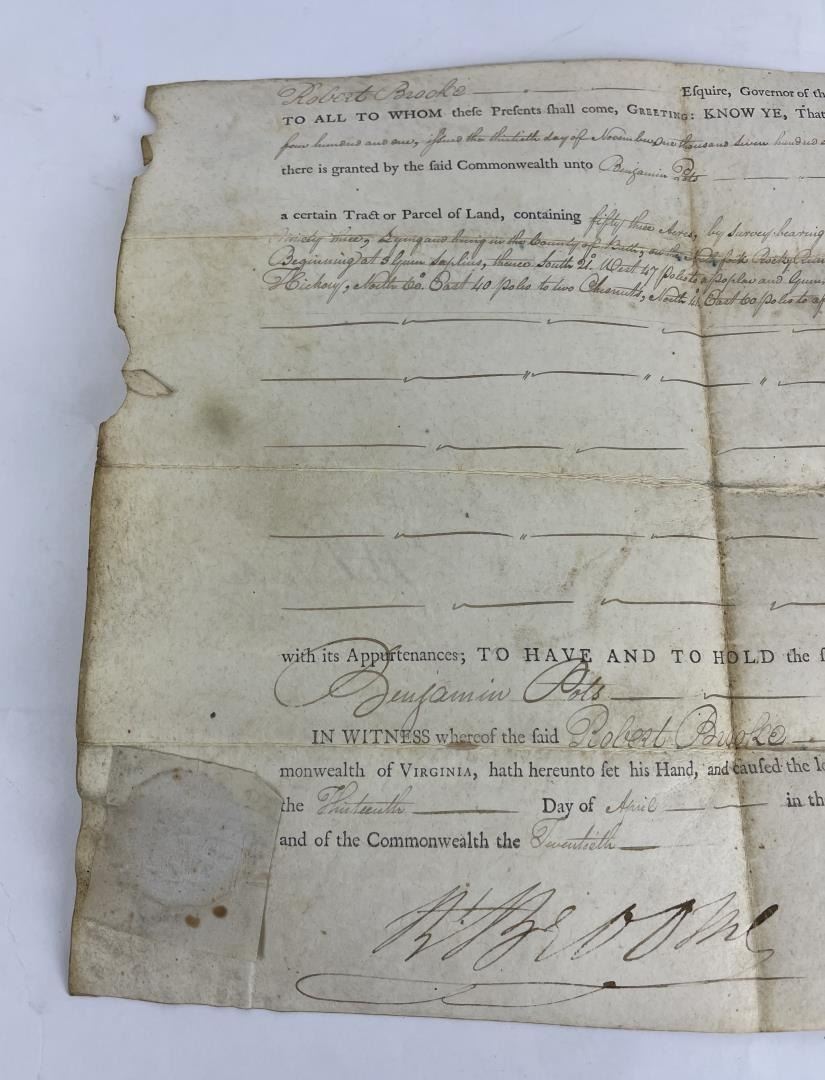 Robert Brooke Eſquire, Governor of th
TO ALL TO WHOM theſe Preſents ſhall come, GREETING: KNOW YE, That
four hundred and one, iſsued the thirtieth day of November one thousand seven hundred
there is granted by the ſaid Commonwealth unto Benjamin Pots
a certain Tract or Parcel of Land, containing fifty three Acres, by survey bearing
Ninety three, Lying and being in the County of Bath, on the of the Rocky
Beginning at 3 Gum saplins, thence South 21° West 47 poles to a poplar and Gum
Hickory, North 60° East 40 poles to two Chesnuts, North East 60 poles to a
with its Appurtenances; TO HAVE AND TO HOLD the ſ
Benjamin Pots
IN WITNESS whereof the ſaid Robert Brooke
monwealth of VIRGINIA, hath hereunto ſet his Hand, and cauſed the
the Thirteenth Day of April in th
and of the Commonwealth the Twentieth
Rt Brooke